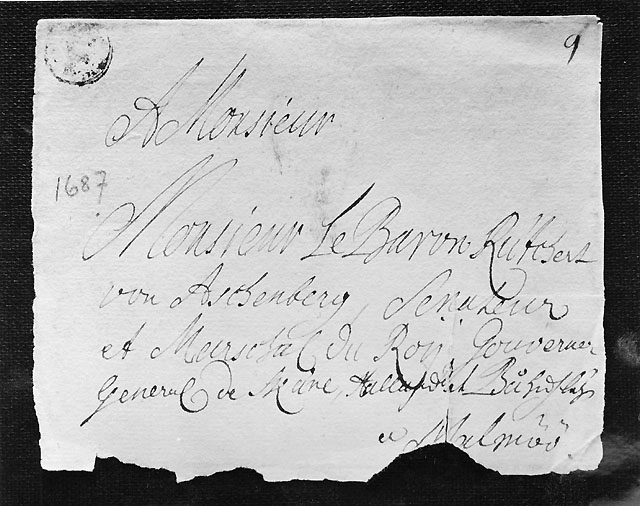 9
A Monsieur
1687
Monsieur Le Baron Rütkert
von Aschenberg, Senateur
et Marschal du Roÿ, Gouverner
General de Skåne Halland et
a Malmöö